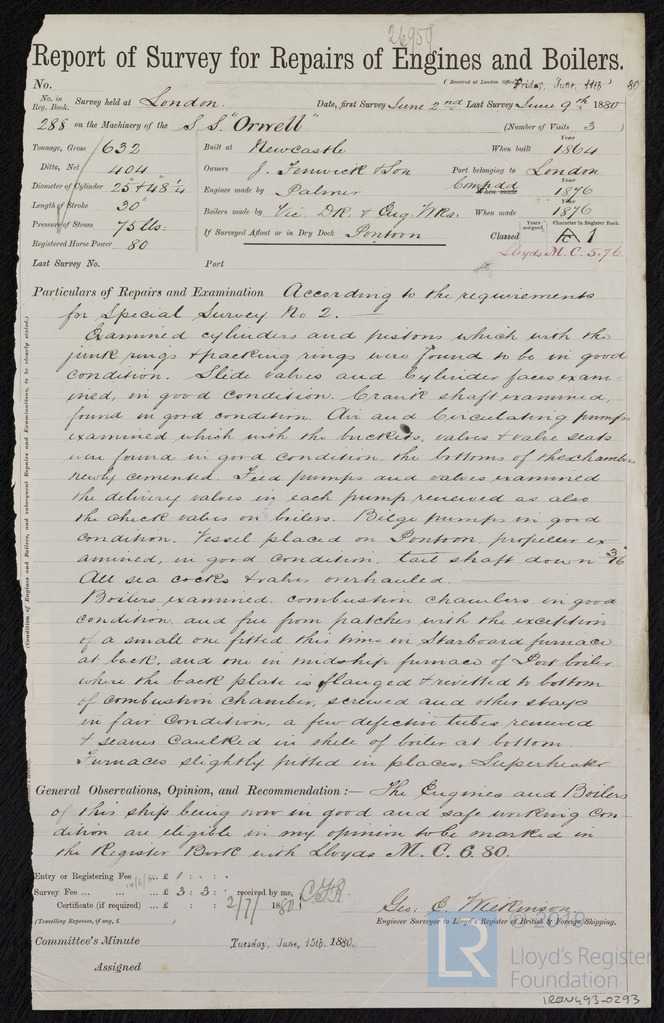 26959
Report of Survey for Repairs of Engines and Boilers.
No. (Received at London Office Friday, June, 11th 80
No. in Reg. Book. Survey held at London. Date, first Survey June 2nd Last Survey June 9th 1880
288 on the Machinery of the S.S. "Orwell" (Number of Visits 3 )
Tonnage, Gross 632 Built at Newcastle When built Year 1864
Ditto, Net 404 Owners J. Fenwick & Son Port belonging to London
Diameter of Cylinder 25" & 48 1/4 Engines made by Palmer Comp'd'd When made Year 1876
Length of Stroke 30" Boilers made by Vic. DK. & Eng. Wks. When made 1876
Pressure of Steam 75 lbs. If Surveyed Afloat or in Dry Dock Pontoon Classed Years assigned Character in Register Book. A 1
Registered Horse Power 80 Lloyds M.C. 5.76
Last Survey No. Port
Particulars of Repairs and Examination According to the requirements
for Special Survey No 2. —
Examined cylinders and pistons which with the
junk rings & packing rings were found to be in good
condition. Slide valves and Cylinder faces exam-
ined, in good condition. Crank shaft examined,
found in good condition. Air and Circulating pumps
examined which with the buckets, valves & valve seats
were found in good condition, the bottoms of the chambers
newly cemented. Feed pumps and valves examined
the delivery valves in each pump renewed as also
the check valves on boilers. Bilge pumps in good
condition. Vessel placed on Pontoon, propeller ex
amined, in good condition, tail shaft down 3/16"
All sea cocks & valves overhauled
Boilers examined. combustion chambers in good
condition, and free from patches with the exception
of a small one fitted this time in Starboard furnace
at back, and one in midship furnace of Port boiler
where the back plate is flanged & rivetted to bottom
of combustion chamber, screwed and other stays
in fair condition, a few defective tubes renewed
& seams caulked in shell of boiler at bottom.
Furnaces slightly pitted in places, Superheater
General Observations, Opinion, and Recommendation :— The Engines and Boilers
of this ship being now in good and safe working con
dition are eligible in my opinion to be marked in
the Register Book with Lloyds M.C. 6.80.
Entry or Registering Fee £ 1 : . : .
Survey Fee ... £ 3 : 3 : . received by me,
Certificate (if required) .. £ : : 2/7/1880
(Travelling Expenses, if any, £ )
Geo: C. Wilkinson
Engineer Surveyor to Lloyd's Register of British & Foreign Shipping.
Committee's Minute Tuesday, June, 15th. 1880.
Assigned
(Condition of Engines and Boilers, and subsequent Repairs and Examinations, to be clearly stated.)
© 2019
LR Lloyd's Register
Foundation
IRON493-0293